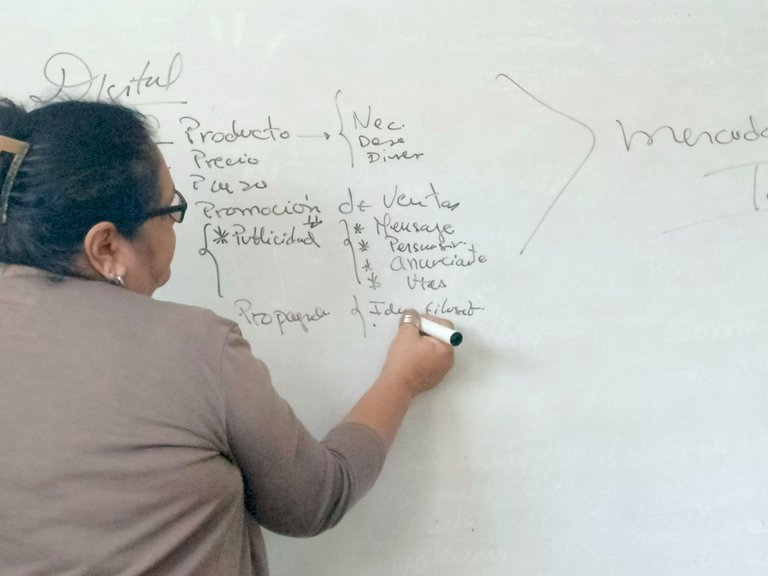 Digital
Producto → Nec.
Dese
Diner
Precio
Plazo
Promoción de Ventas
* Publicidad * Mensaje
* Persuasiv.
* Anunciante
* Vtas
Propaganda
mercado